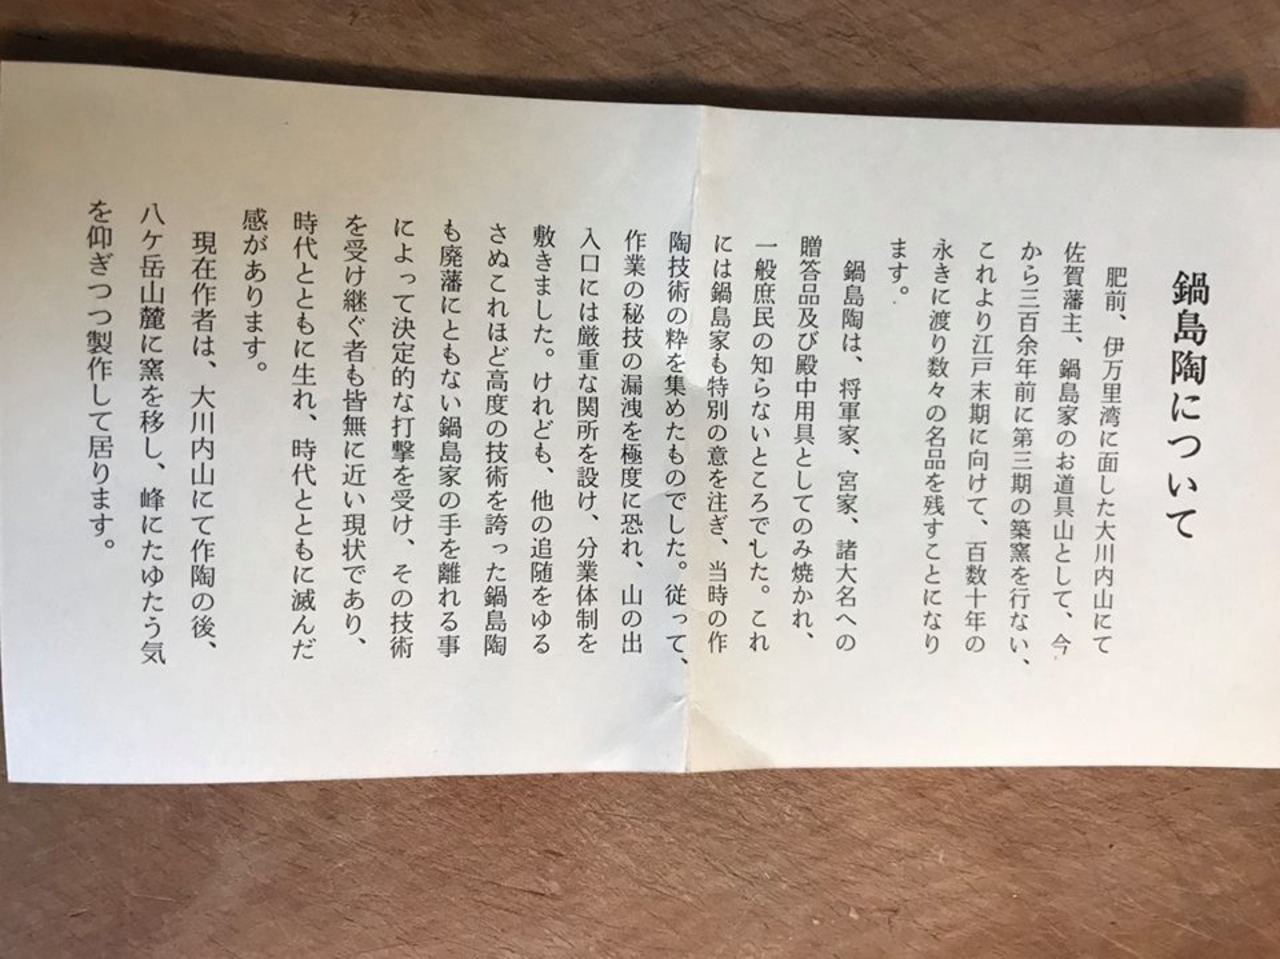 鍋島陶について
肥前、伊万里湾に面した大川内山にて
佐賀藩主、鍋島家のお道具山として、今
から三百余年前に第三期の築窯を行ない、
これより江戸末期に向けて、百数十年の
永きに渡り数々の名品を残すことになり
ます。
鍋島陶は、将軍家、宮家、諸大名への
贈答品及び殿中用具としてのみ焼かれ、
一般庶民の知らないところでした。これ
には鍋島家も特別の意を注ぎ、当時の作
陶技術の粋を集めたものでした。従って、
作業の秘技の漏洩を極度に恐れ、山の出
入口には厳重な関所を設け、分業体制を
敷きました。けれども、他の追随をゆる
さぬこれほど高度の技術を誇った鍋島陶
も廃藩にともない鍋島家の手を離れる事
によって決定的な打撃を受け、その技術
を受け継ぐ者も皆無に近い現状であり、
時代とともに生れ、時代とともに滅んだ
感があります。
現在作者は、大川内山にて作陶の後、
八ケ岳山麓に窯を移し、峰にたゆたう気
を仰ぎつつ製作して居ります。